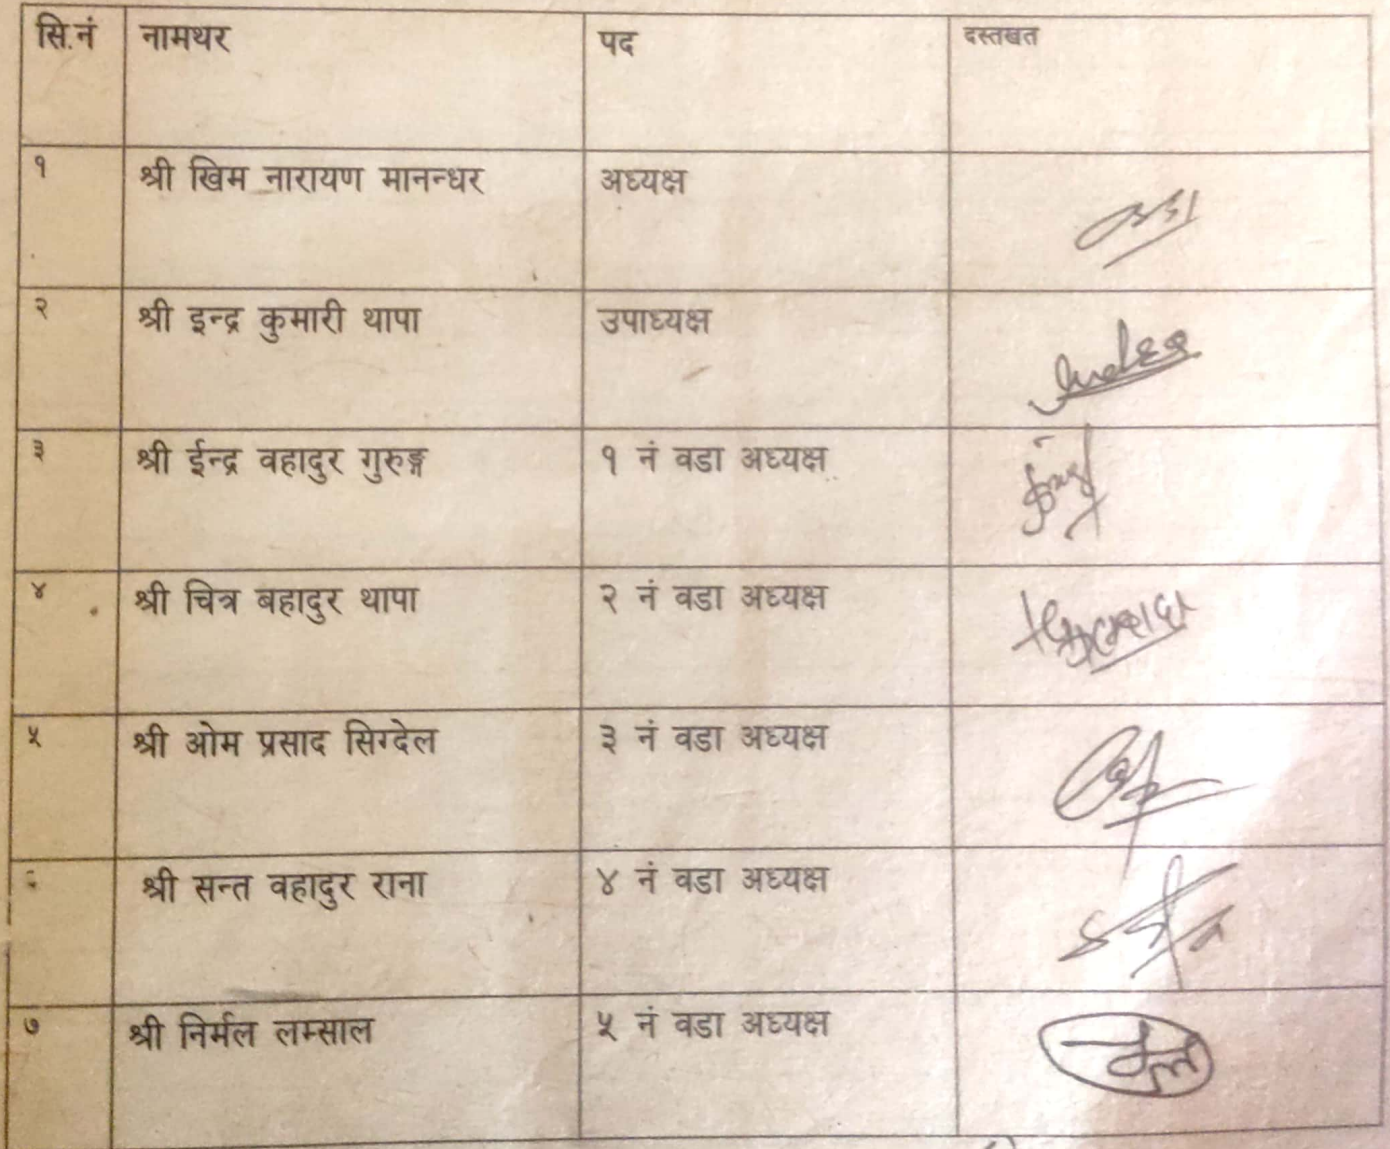 सि.नं नामथर पद दस्तखत
१ श्री खिम नारायण मानन्धर अध्यक्ष
२ श्री इन्द्र कुमारी थापा उपाध्यक्ष
३ श्री ईन्द्र वहादुर गुरुङ्ग १ नं वडा अध्यक्ष
४ श्री चित्र बहादुर थापा २ नं वडा अध्यक्ष
५ श्री ओम प्रसाद सिग्देल ३ नं वडा अध्यक्ष
श्री सन्त वहादुर राना ४ नं वडा अध्यक्ष
७ श्री निर्मल लम्साल ५ नं वडा अध्यक्ष